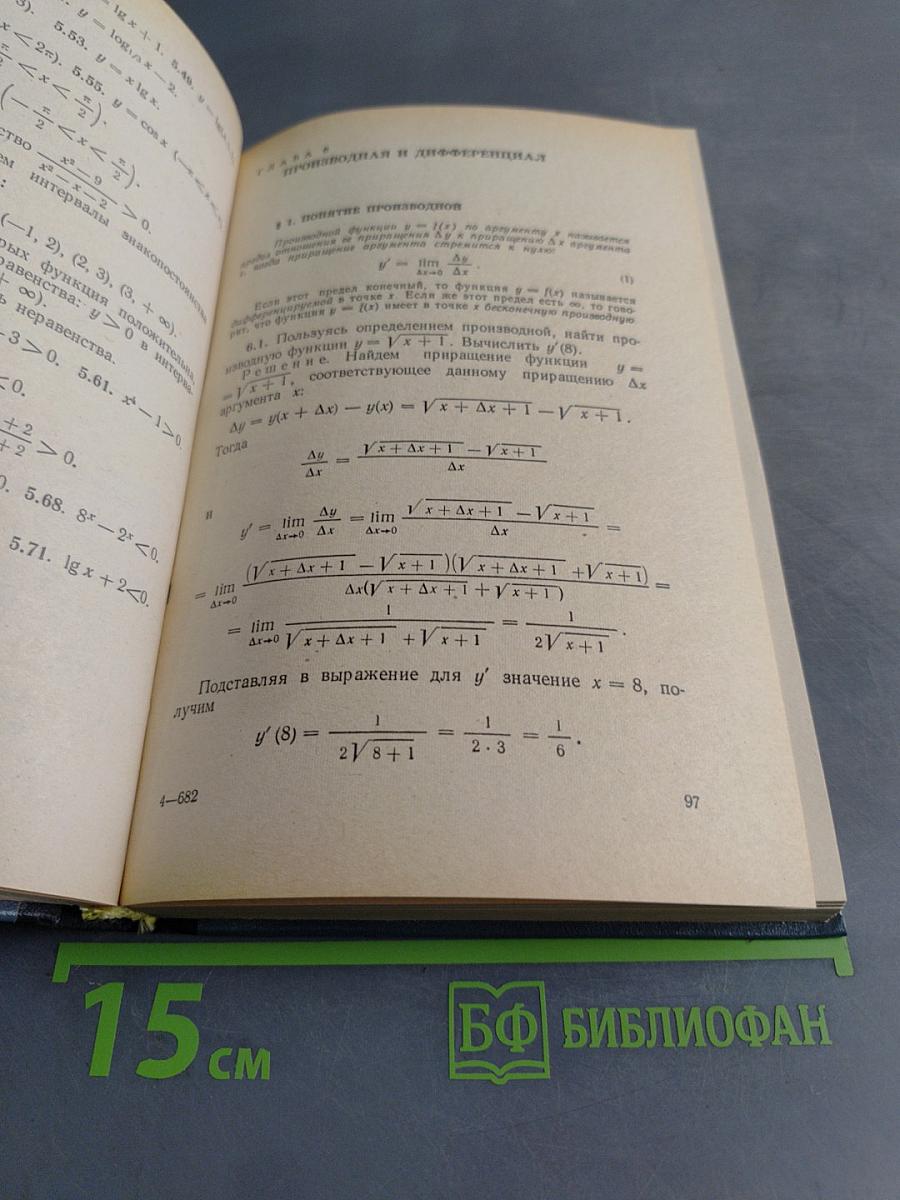 = lg x + 1. 5.49. y =
y = log₁/₃ x − 2.
3). 5.53. y = x lg x.
x < 2π). 5.55. y = cos x (−π < x
< x < π/2).
(− π/2 < x < π/2).
(x² − 9)/(x² − x − 2) > 0.
интервалы знакопостоянства
(−1, 2), (2, 3), (3, + ∞).
функция положительна,
y > 0 в интерва-
+ ∞).
неравенства.
− 3 > 0. 5.61. x⁴ − 1 > 0
< 0.
+ 2
+ 2 > 0.
5.68. 8ˣ − 2ˣ < 0.
5.71. lg x + 2 < 0.
ГЛАВА 6
ПРОИЗВОДНАЯ И ДИФФЕРЕНЦИАЛ
§ 1. ПОНЯТИЕ ПРОИЗВОДНОЙ
Производной функции y = f(x) по аргументу x называется
предел отношения ее приращения Δy к приращению Δx аргумента
x, когда приращение аргумента стремится к нулю:
y′ = lim Δx→0 Δy/Δx. (1)
Если этот предел конечный, то функция y = f(x) называется
дифференцируемой в точке x. Если же этот предел есть ∞, то гово-
рят, что функция y = f(x) имеет в точке x бесконечную производную
6.1. Пользуясь определением производной, найти про-
изводную функции y = √(x + 1). Вычислить y′(8).
Решение. Найдем приращение функции y =
= √(x + 1), соответствующее данному приращению Δx
аргумента x:
Δy = y(x + Δx) − y(x) = √(x + Δx + 1) − √(x + 1).
Тогда
Δy/Δx = (√(x + Δx + 1) − √(x + 1))/Δx
и
y′ = lim Δx→0 Δy/Δx = lim Δx→0 (√(x + Δx + 1) − √(x + 1))/Δx =
= lim Δx→0 (√(x + Δx + 1) − √(x + 1))(√(x + Δx + 1) + √(x + 1))/(Δx(√(x + Δx + 1) + √(x + 1))) =
= lim Δx→0 1/(√(x + Δx + 1) + √(x + 1)) = 1/(2√(x + 1)).
Подставляя в выражение для y′ значение x = 8, по-
лучим
y′(8) = 1/(2√(8 + 1)) = 1/(2 · 3) = 1/6.
4—682
97
15 см
БФ БИБЛИОФАН